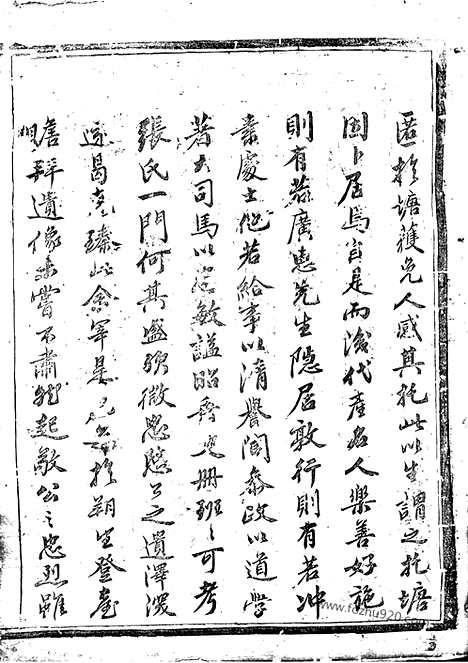 匿於塘獲免人感其托此以生謂之托塘
因卜居焉自是而後代產名人樂善好施
則有若廣惠先生隱居敦行則有若冲
素處士他若給事以清譽聞參政以道學
著大司馬以忠敏謚昭吾史冊班班可考
張氏一門何其盛歟微忠臨公之遺澤深
遠曷克臻此余罕是邑每於朔望登堂
瞻拜遺像未嘗不肅然起敬公之忠烈雖
www.fozhu920.com